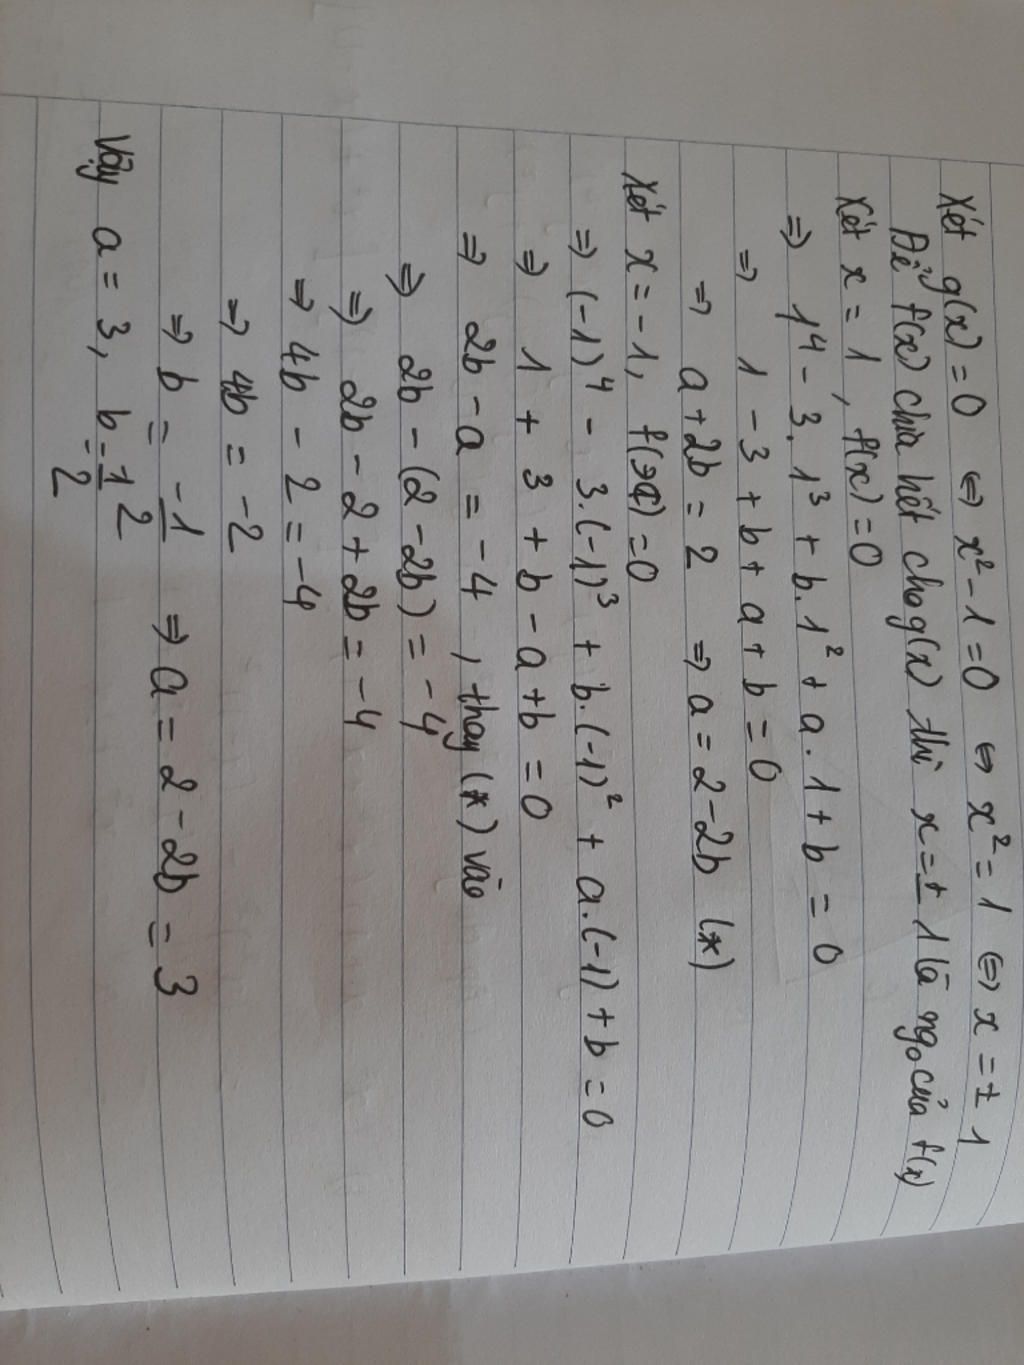 Xét g(x) = 0 ⇔ x² - 1 = 0 ⇔ x² = 1 ⇔ x = ± 1
Để f(x) chia hết cho g(x) thì x = ± 1 là ngo của f(x)
Xét x = 1, f(x) = 0
⇒ 1⁴ - 3.1³ + b.1² + a.1 + b = 0
⇒ 1 - 3 + b + a + b = 0
⇒ a + 2b = 2 ⇒ a = 2 - 2b (*)
Xét x = -1, f(x) = 0
⇒ (-1)⁴ - 3.(-1)³ + b.(-1)² + a.(-1) + b = 0
⇒ 1 + 3 + b - a + b = 0
⇒ 2b - a = -4, thay (*) vào
⇒ 2b - (2 - 2b) = -4
⇒ 2b - 2 + 2b = -4
⇒ 4b - 2 = -4
⇒ 4b = -2
⇒ b = -1/2 ⇒ a = 2 - 2b = 3
Vậy a = 3, b = -1/2